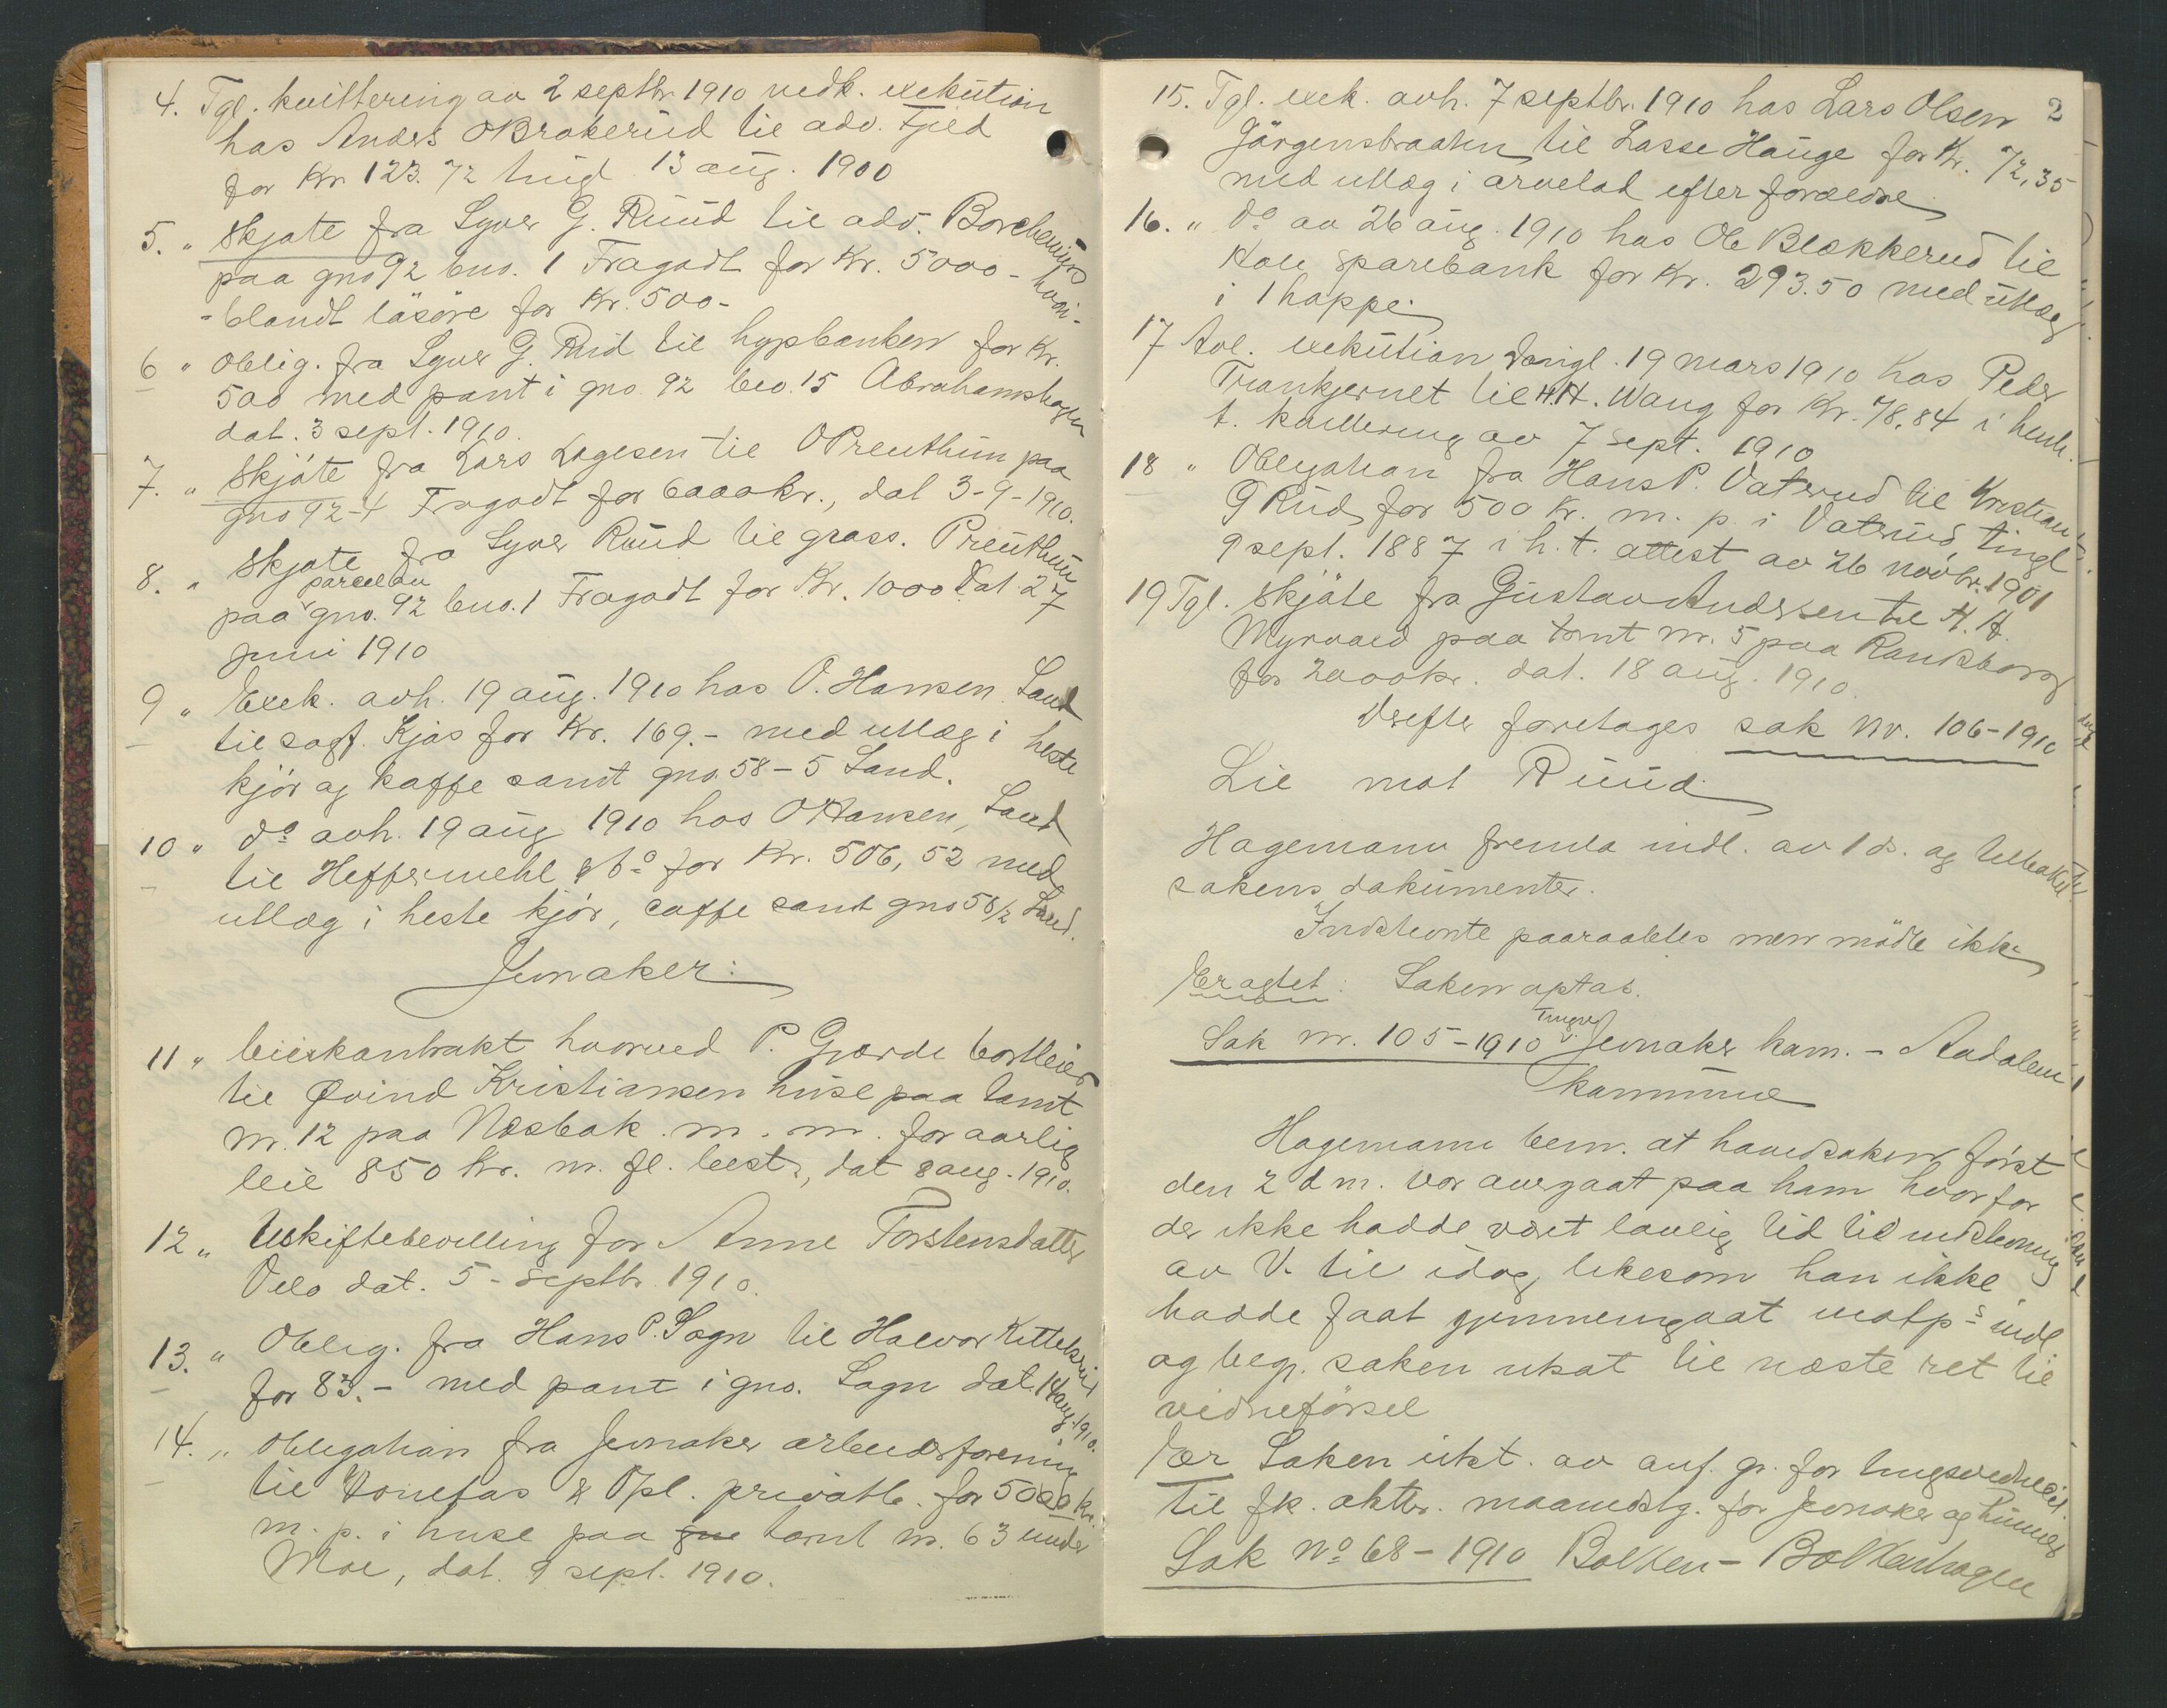 4. Tgl. kvittering av 2 septbr 1910 vedk. exekution
hos Anders OBrakerud til adv. Fjeld
for Kr. 123.72 tingl 13 aug. 1900
5. " Skjøte fra Syver G. Ruud til adv.
paa gno 92 bno. 1 Fragodt for Kr. 5000 - hvori-
-blandt løsøre for Kr. 500-
6 " Oblig. fra Syver G. Rud til hypbanken for Kr.
500 med pant i gno. 92 bno. 15 Abrahamshagen
dat. 3 sept. 1910.
7. " Skjøte fra Lars Lagesen til OPreuthun paa
gno 92-4 Fragodt for 6000kr., dat 3-9-1910.
8. " Skjøte fra Syver Ruud til grass. Preuthun
parcellen
paa gno. 92 bno. 1 Fragodt for Kr. 1000 dat 27
juni 1910
9 " Exek. avh. 19 aug. 1910 hos O. Hansen Sand
til sagf. Kjos for Kr. 169.- med utlæg i heste
kjør og kaffe samt gno. 58-5 Sand.
10 " do avh. 19 aug 1910 hos OHansen, Sand
til Heffermehl & Co for Kr. 506,52 med
utlæg i heste kjør, caffe samt gno 58/2 Sand.
Jevnaker:
11 " Leiekontrakt hvorved P. Gjærde bortleier
til Øvind Kristiansen huse paa tomt
nr. 12 paa Næsbak m. m. for aarlig
leie 850 Kr. m. fl. best., dat 8 aug. 1910.
12 " Uskiftebevilling for Anne Torstensdatter
Velo dat. 5 - septbr. 1910.
13. " Oblig. fra Hans P. Sogn til Halvor Kittelsrud
for 83.- med pant i gno. Sogn dat. 14 aug. 1910.
14. " Obligation fra Jevnaker arbeiderforening
til Honefos & Opl. privatb. for 5000 kr.
m. p. i huse paa gno tomt nr. 63 under
Moe, dat. 9 sept. 1910.
2
15. Tgl. exek. avh. 7 septbr. 1910 hos Lars Olsen
Jørgensbraaten til Lasse Hauge for Kr. 72,35
med utlæg i arvelod efter forældre
16. " do av 26 aug. 1910 hos Ole Blækkerud til
sparebank for Kr. 293.50 med utlæg
i 1 hoppe.
17 Avl. exekution tingl. 19 mars 1910 hos Peder
Trantjernet til H.H. Wang for Kr. 78,84 i henh.
t. kvittering av 7 sept. 1910
18 " Obligation fra Hans P. Vaterud til Kristian
G Rud for 500 Kr. m. p. i Vaterud tingl
9 sept. 1887 i h. t. attest av 26 novbr. 1901
19 Tgl. Skjøte fra Gustav Andersen til H. H.
Myrvold paa tomt nr. 5 paa Randsborg
for 2000kr. dat. 18 aug. 1910.
Derefter foretages sak Nr. 106-1910
Lie mot Ruud
Hagemann fremla indl. av 1 ds. og tilbakel.
sakens dokumenter.
Indstevnte paaraabtes men mødte ikke
Eragtet: Saken optas.
Tingvs
Sak nr. 105-1910 v. Jevnaker kom. - Aadalens
kommune
Hagemann bem. at hovedsaken først
den 2 dm. var overgaat paa ham hvorfor
der ikke hadde været lovlig tid til indstevning
av V. til idag, likesom han ikke
hadde faat gjennemgaat motps indl
og beg. saken utsat til næste ret til
vidneførsel
Eer Saken utst. av anf. gr. for tingsvidnet
til fk. oktbr. maanedstg. for Jevnaker og Lunner
Sak No 68-1910 Bolken - Bolkenhagen